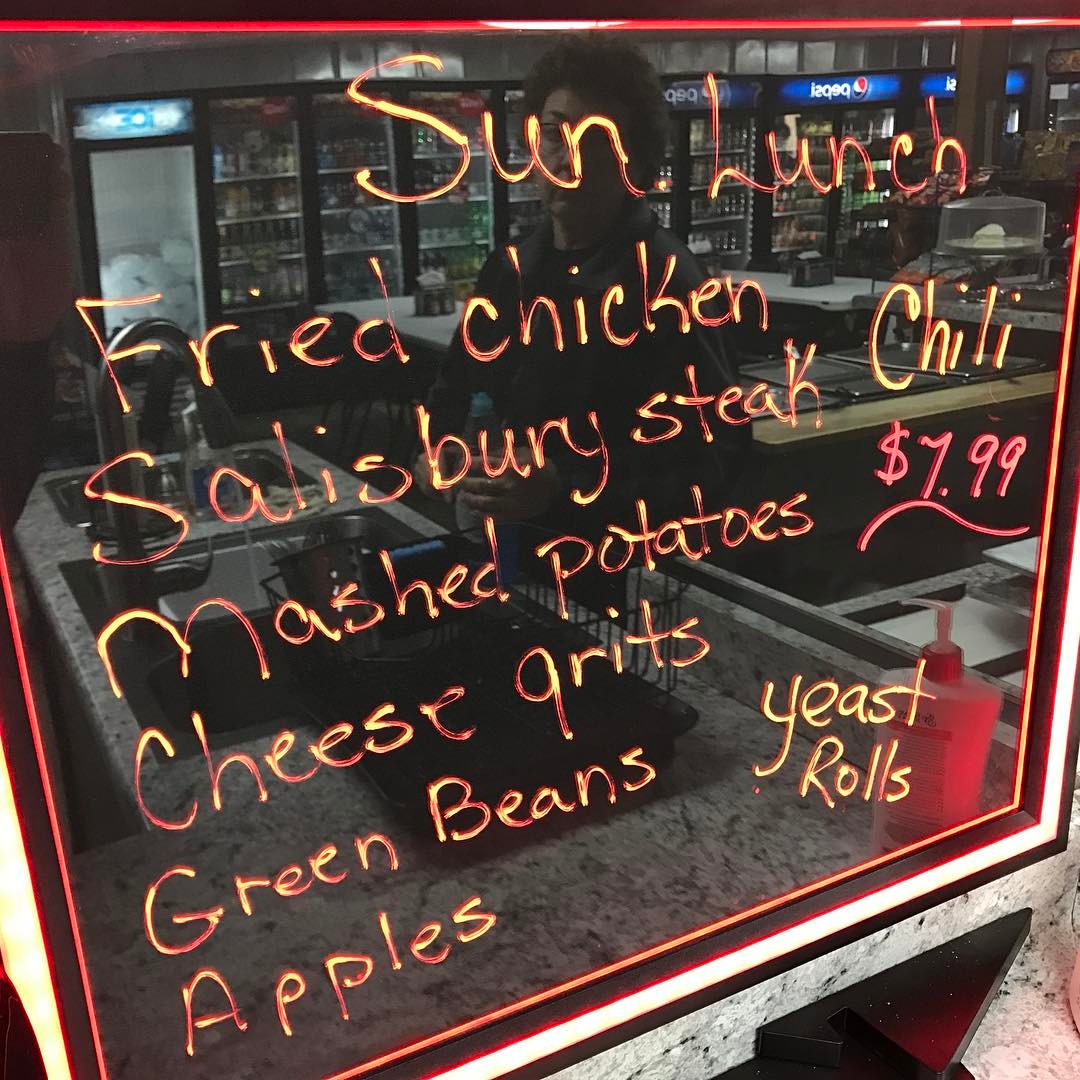 Sun. Lunch
Fried chicken
Chili
Salisbury steak
$7.99
Mashed potatoes
Cheese grits
yeast
Rolls
Green Beans
Apples
pepsi
pepsi